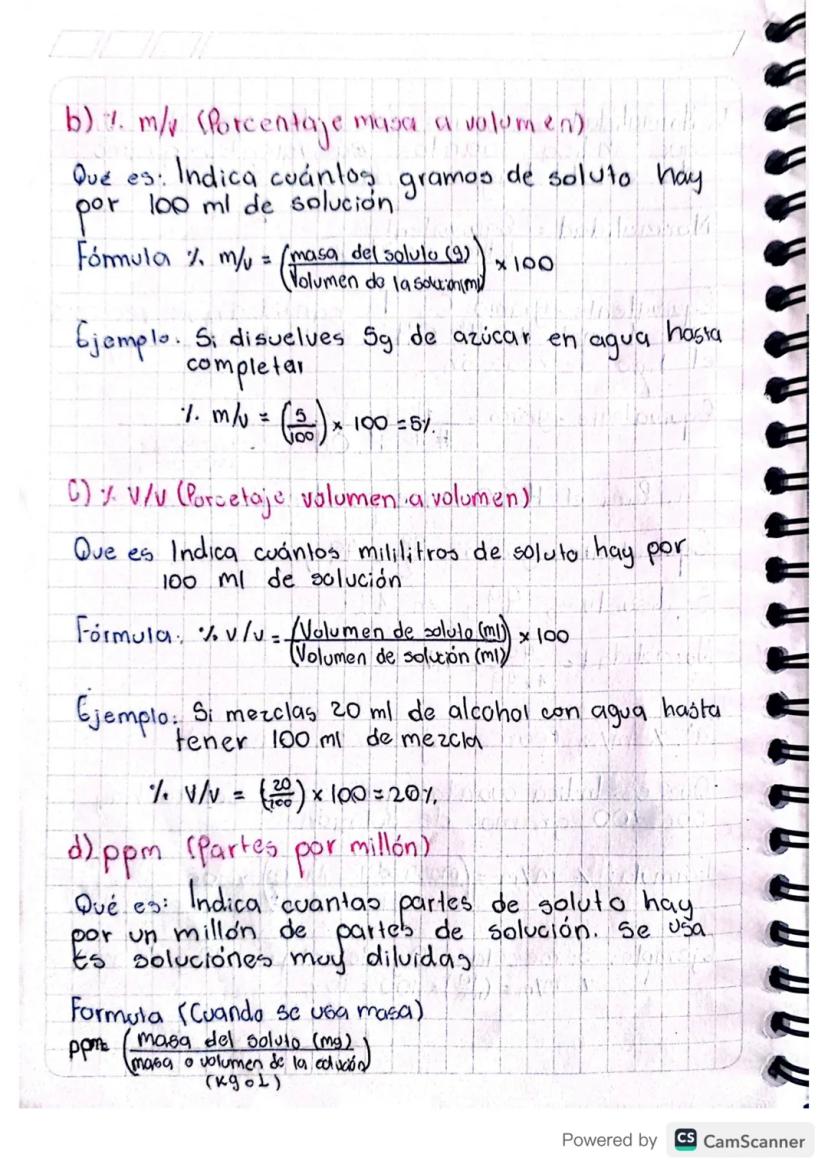 b) % m/v (Porcentaje masa a volumen)
Qué es: Indica cuántos gramos de soluto hay
por 100 ml de solución
Fórmula % m/v = (masa del soluto (g)) x 100
(Volumen de la solución (ml)
Ejemplo. Si disuelves 5g de azúcar en agua hasta
completar
% m/v = (5/100) x 100 = 5%.
C) % V/V (Porcetaje volumen a volumen)
Que es Indica cuántos mililitros de soluto hay por
100 ml de solución
Fórmula: % v/v = (Volumen de soluto (ml)) x 100
(Volumen de solución (ml))
Ejemplo: Si mezclas 20 ml de alcohol con agua hasta
tener 100 ml de mezcla
% V/V = (20/100) x 100 = 20%.
d) ppm (Partes por millón)
Qué es: Indica cuantas partes de soluto hay
por un millón de partes de solución. Se usa
Es soluciónes muy diluidas
Formula (Cuando se usa masa)
ppm= (masa del soluto (mg))
(masa o volumen de la solución)
(Kg o L)
Powered by CS CamScanner